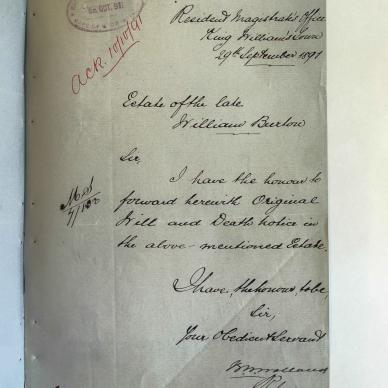 OCT. 91
ACK. 10/10/91
Resident Magistrate's Office
King William's Town
29th September 1891
Estate of the late
William Burton
Sir,
I have the honour to
forward herewith Original
Will and Death notice in
the above-mentioned Estate.
I have, the honour, to be,
Sir,
Your Obedient Servant